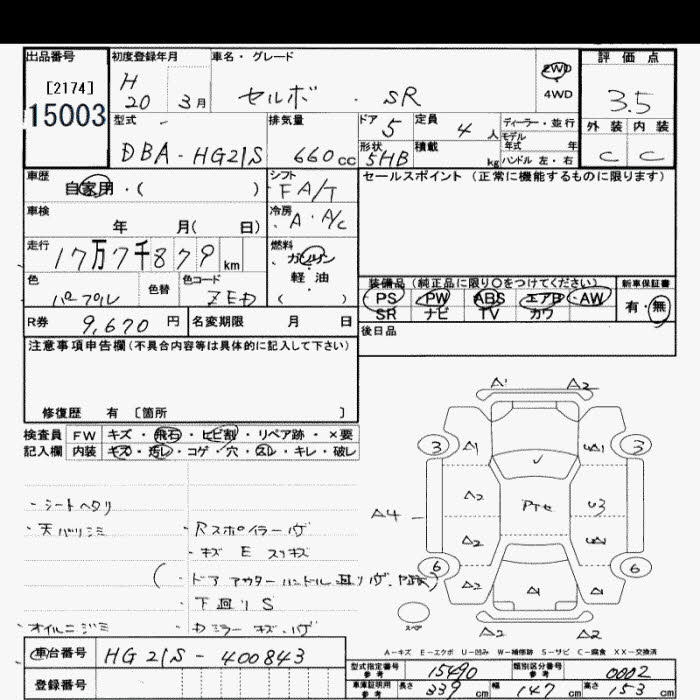 出品番号 初度登録年月 車名・グレード 評価点
[2174] H 20 3月 セルボ・SR 2WD 4WD 3.5
15003 型式 排気量 ドア 5 定員 4人 ディーラー・並行 外装 内装
DBA-HG21S 660cc 形状 5HB 積載 kg モデル年式 年 ハンドル 左・右 C C
車歴 自家用・( ) シフト FA/T セールスポイント (正常に機能するものに限ります)
車検 年 月( 日) 冷房 A・A/C
走行 17万7千879km 燃料 ガソリン 軽油 ( )
色 パープル 色替 色コード 装備品 (純正品に限り○をつけてください) 新車保証書
PS PW ABS エアB AW 有・無
SR ナビ TV カワ
R券 9,670円 名変期限 月 日 後日品
注意事項申告欄(不具合内容等は具体的に記入して下さい)
修復歴 有 〔箇所 〕
検査員 FW キズ・飛石・ヒビ割・リペア跡・×要
記入欄 内装 キズ・汚レ・コゲ・穴・スレ・キレ・破レ
A1 A2
3 A1 A1 3
A2 Pte U3
A4
A2
6 A2 A1 A1 6
スペア
A2 A2
・シートヘタリ
・天バリシミ ・Rスポイラーハゲ
・キズ E スリキズ
・下回りS
・オイルニジミ ・Dミラーキズ・ハゲ
A-キズ E-エクボ U-凹ミ W-補修跡 S-サビ C-腐食 XX-交換済
車台番号 HG21S-400843
型式指定番号 参考 15490 類別区分番号 参考 0002
登録番号 車庫証明用 参考 長さ 339cm 幅 147cm 高さ 153cm